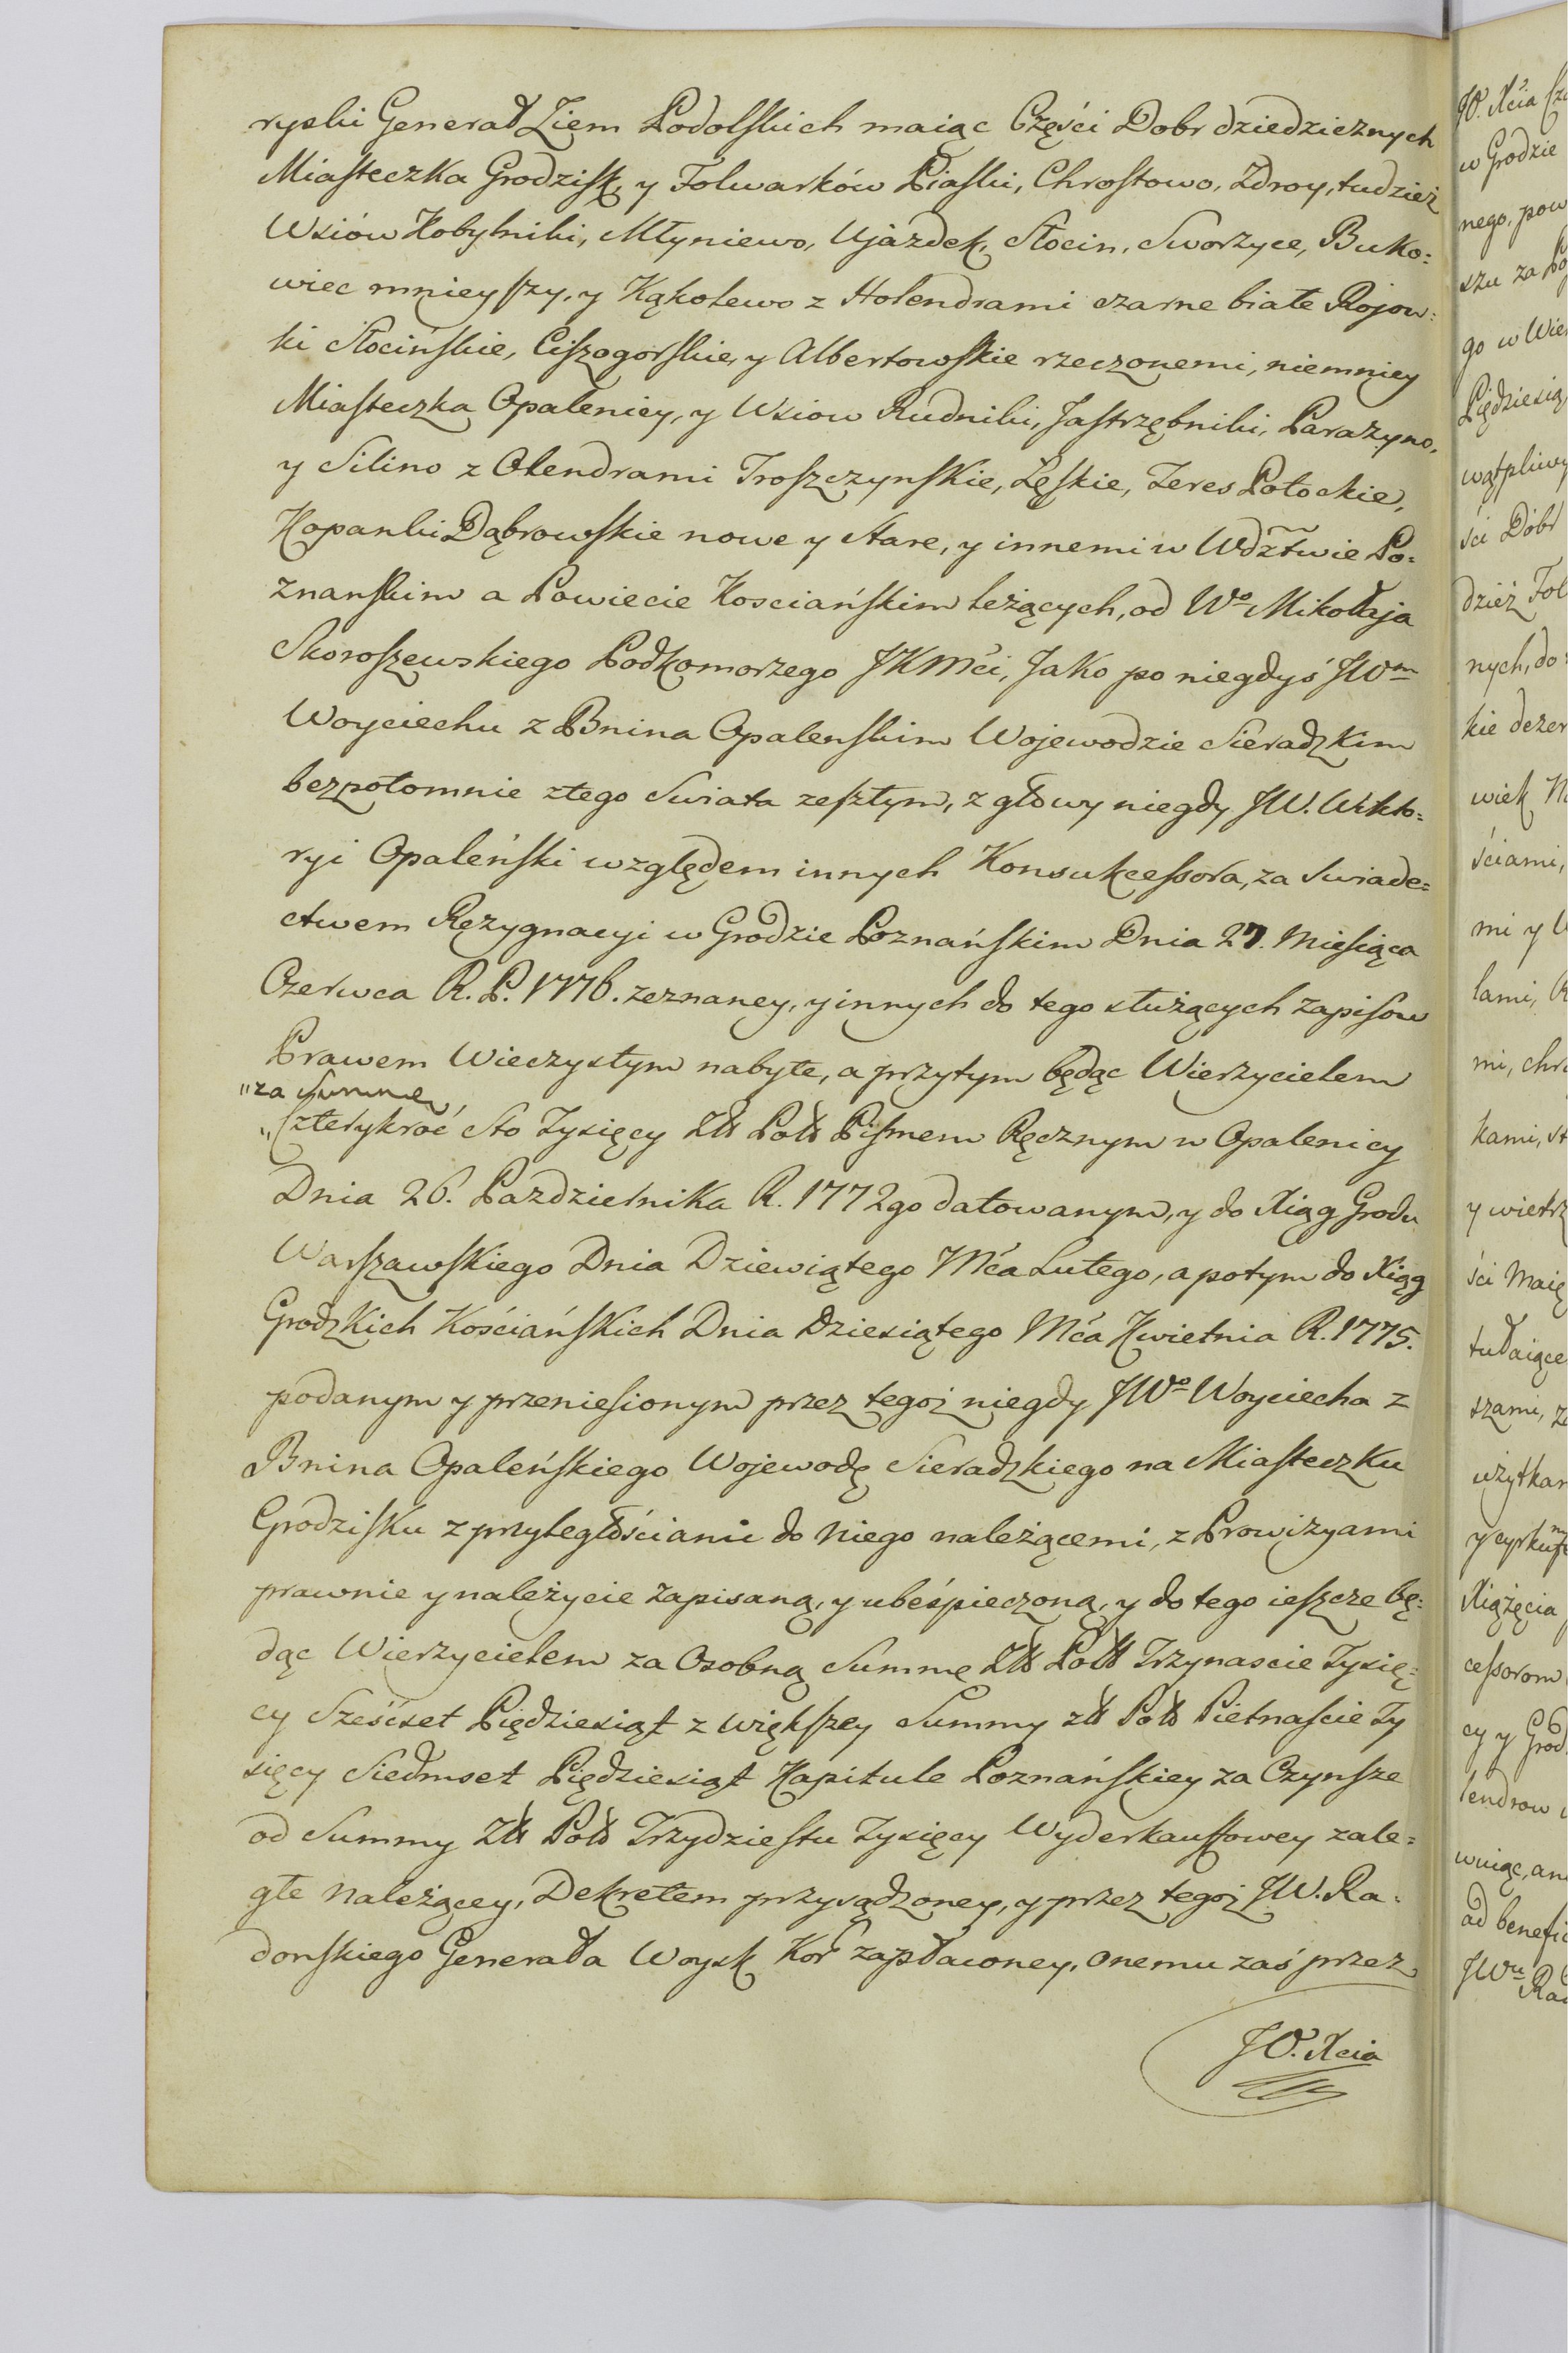 ryski Generał Ziem Podolskich maiąc Części Dobr dziedzicznych
Miasteczka Grodzisk, y Folwarków Piaski, Chrostowo, Zdroy, tudzież
Wsiów Kobylniki, Młyniewo, Ujazdek, Słocin, Sworzyce, Buko:
wiec mnieyszy, y Kąkolewo z Holendrami czarne białe Rojow:
ki Słocińskie, Ciszogorskie, y Albertowskie rzeczonemi, niemniey
Miasteczka Opalenicy, y Wsiow Rudniki, Jastrzębniki, Parazyno,
y Silino z Olendrami Troszczynskie, Łęskie, Terespotockie,
Kopanki Dąbrowskie nowe y stare, y innemi w Wdztwie Po:
znanskim a Powiecie Kosciańskim leżących, od Wo Mikołaja
Skoroszewskiego Podkomorzego JKMći, Jako po niegdyś JWm
Woyciechu z Bnina Opalenskim Wojewodzie Sieradzkim
bezpotomnie ztego Swiata zeszłym, z głowy niegdy JW. Wikto:
ryi Opaleński względem innych Konsukcessora, za Swiade:
ctwem Rezygnacyi w Grodzie Poznańskim Dnia 27. Miesiąca
Czerwca R. P. 1776. zeznaney, y innych do tego służących zapisow
Prawem Wieczystym nabyte, a przytym będąc Wierzycielem
"za Summę
"Czterykroć Sto Tysięcy Złł Polł Pismem Ręcznym w Opalenicy
Dnia 26. Pazdziernika R. 1772go datowanym, y do Xiąg Grodu
Warszawskiego Dnia Dziewiątego Mća Lutego, a potym do Xiąg
Grodzkich Kościańskich Dnia Dziesiątego Mća Kwietnia R. 1775.
podanym y przeniesionym przez tegoż niegdy JWo Woyciecha z
Bnina Opaleńskiego Wojewodę Sieradzkiego na Miasteczku
Grodzisku z przyległościami do niego należącemi, z Prowizyami
prawnie y należycie zapisaną, y ubeśpieczoną, y do tego ieszcze bę:
dąc Wierzycielem za Osobną Summę Złł Polł Trzynascie Tysię:
cy Sześćset Pięćdziesiąt z większey Summy złł Polł Pietnascie Ty
sięcy Siedmset Pięćdziesiąt Kapitule Poznańskiey za Czynsze
od Summy Złł Polł Trzydziestu Tysięcy Wyderkauffowey zale:
głe należącey, Dekretem przysądzoney, y przez tegoż JW. Ra:
donskiego Generała Woysk Kor zapłaconey, onemu zaś przez
JO. Xcia
JO. Xćia
w Grodzie
nego, pow
szu za
go w
wątpliwy
ści Dóbr
dzież Fol
nych, do
kie dezer
wiek
ściami,
mi y
lami,
mi,
kami,
y wietrz
ści
tułaiące
szami,
użytkam
Xiążęcia
cessorom
cy y Grod
lendrow
wuiąc,
ad benefic
JWu